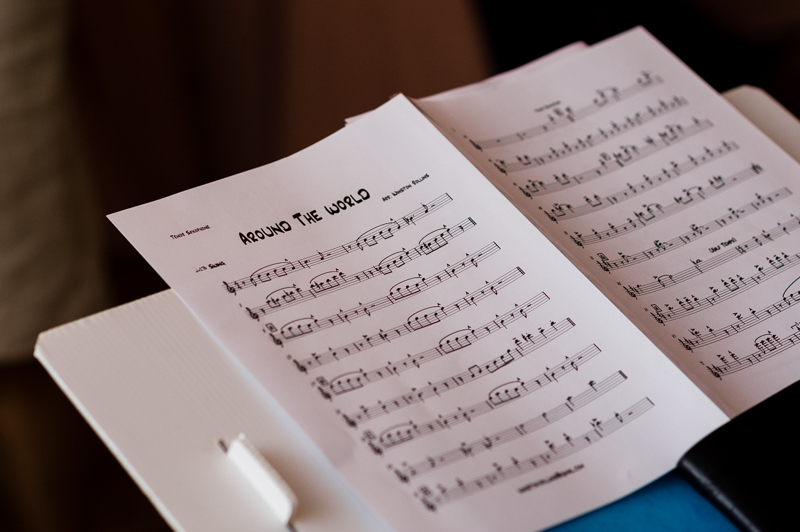 Tenor Saxophone
AROUND THE WORLD
ARR. WINSTON ROLLINS
SWING
(HALF TEMPO)